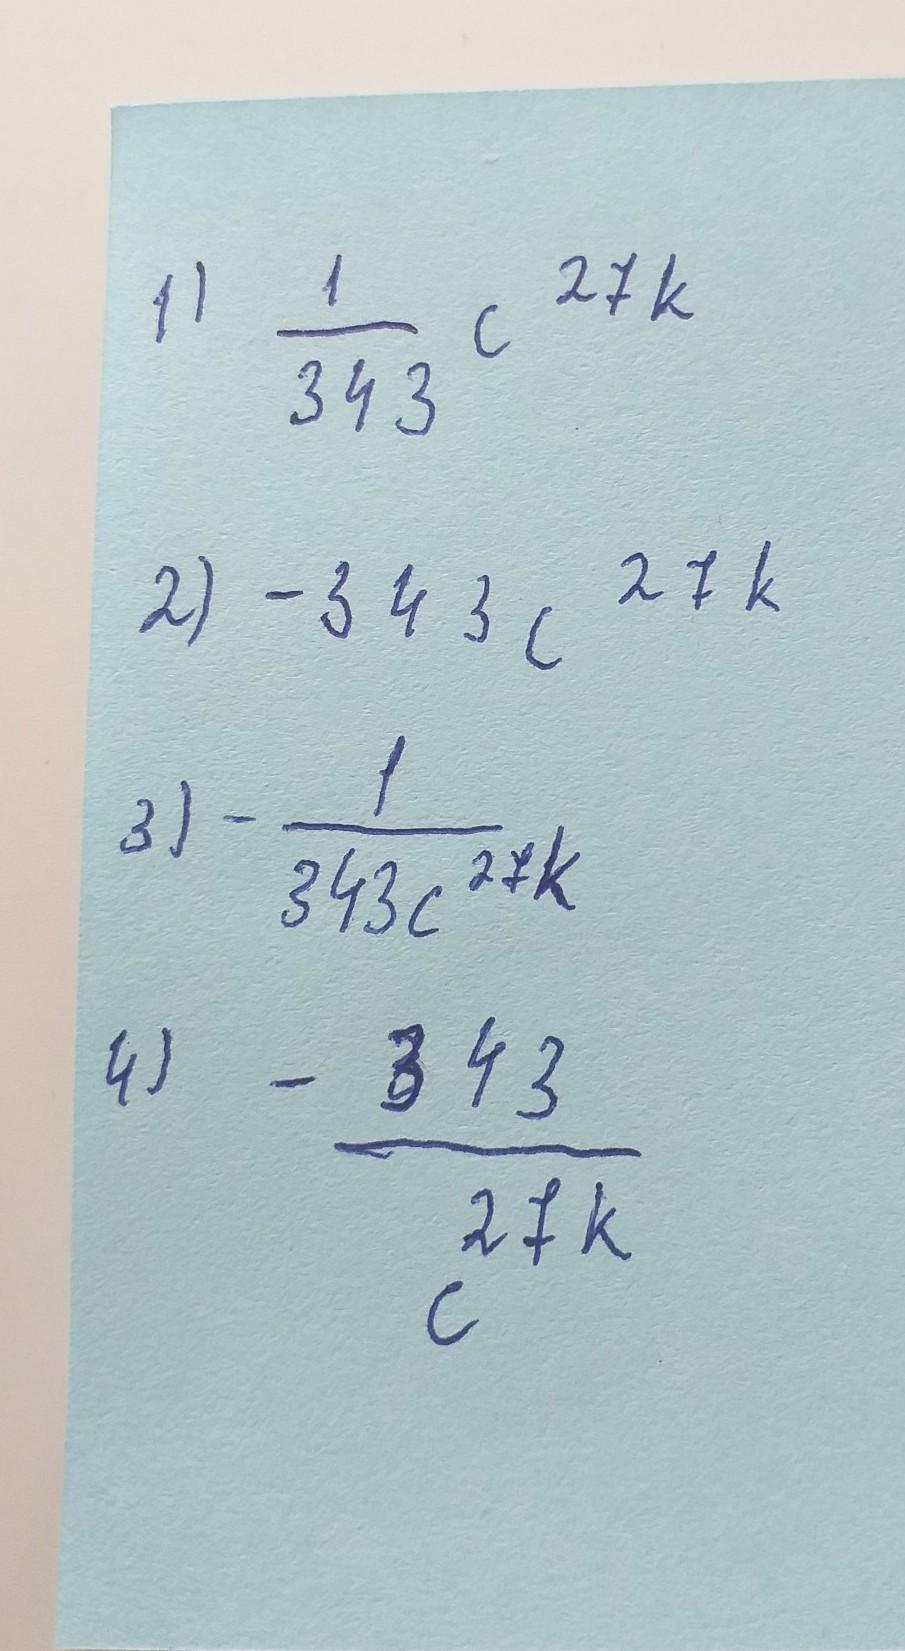 1) \frac{1}{343} c^{27k}
2) -343c^{27k}
3) -\frac{1}{343c^{27k}}
4) -\frac{343}{c^{27k}}